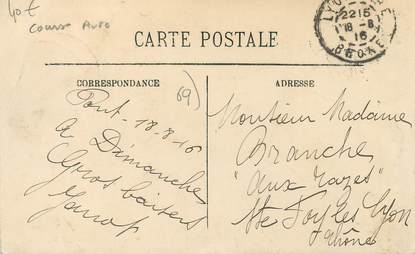 40€
course Auto
LYON
2215
18-8
16
BROKE
CARTE POSTALE
CORRESPONDANCE
ADRESSE
69)
Pont-18-8-16
A Dimanche
Gros baisers
Monsieur Madame
Branche
"aux Razes"
Ste Foy les Lyon
Rhône